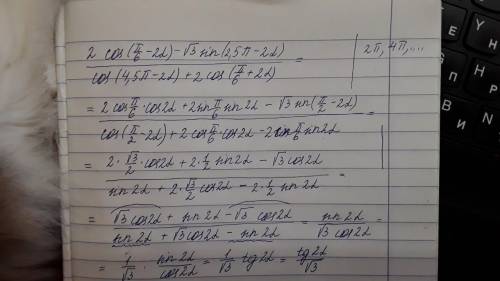 2 cos(π/6 - 2α) - √3 sin(2,5π - 2α) / cos(4,5π - 2α) + 2 cos(π/6 + 2α) =
2π, 4π, ...
= 2 cos π/6 · cos2α + 2 sin π/6 sin2α - √3 sin(π/2 - 2α) / cos(π/2 - 2α) + 2 cos π/6 cos2α - 2 sin π/6 sin2α =
= 2 · √3/2 cos2α + 2 · 1/2 sin2α - √3 cos2α / sin2α + 2 · √3/2 cos2α - 2 · 1/2 sin2α =
= √3 cos2α + sin2α - √3 cos2α / sin2α + √3 cos2α - sin2α = sin2α / √3 cos2α =
= 1/√3 · sin2α / cos2α = 1/√3 tg2α = tg2α / √3